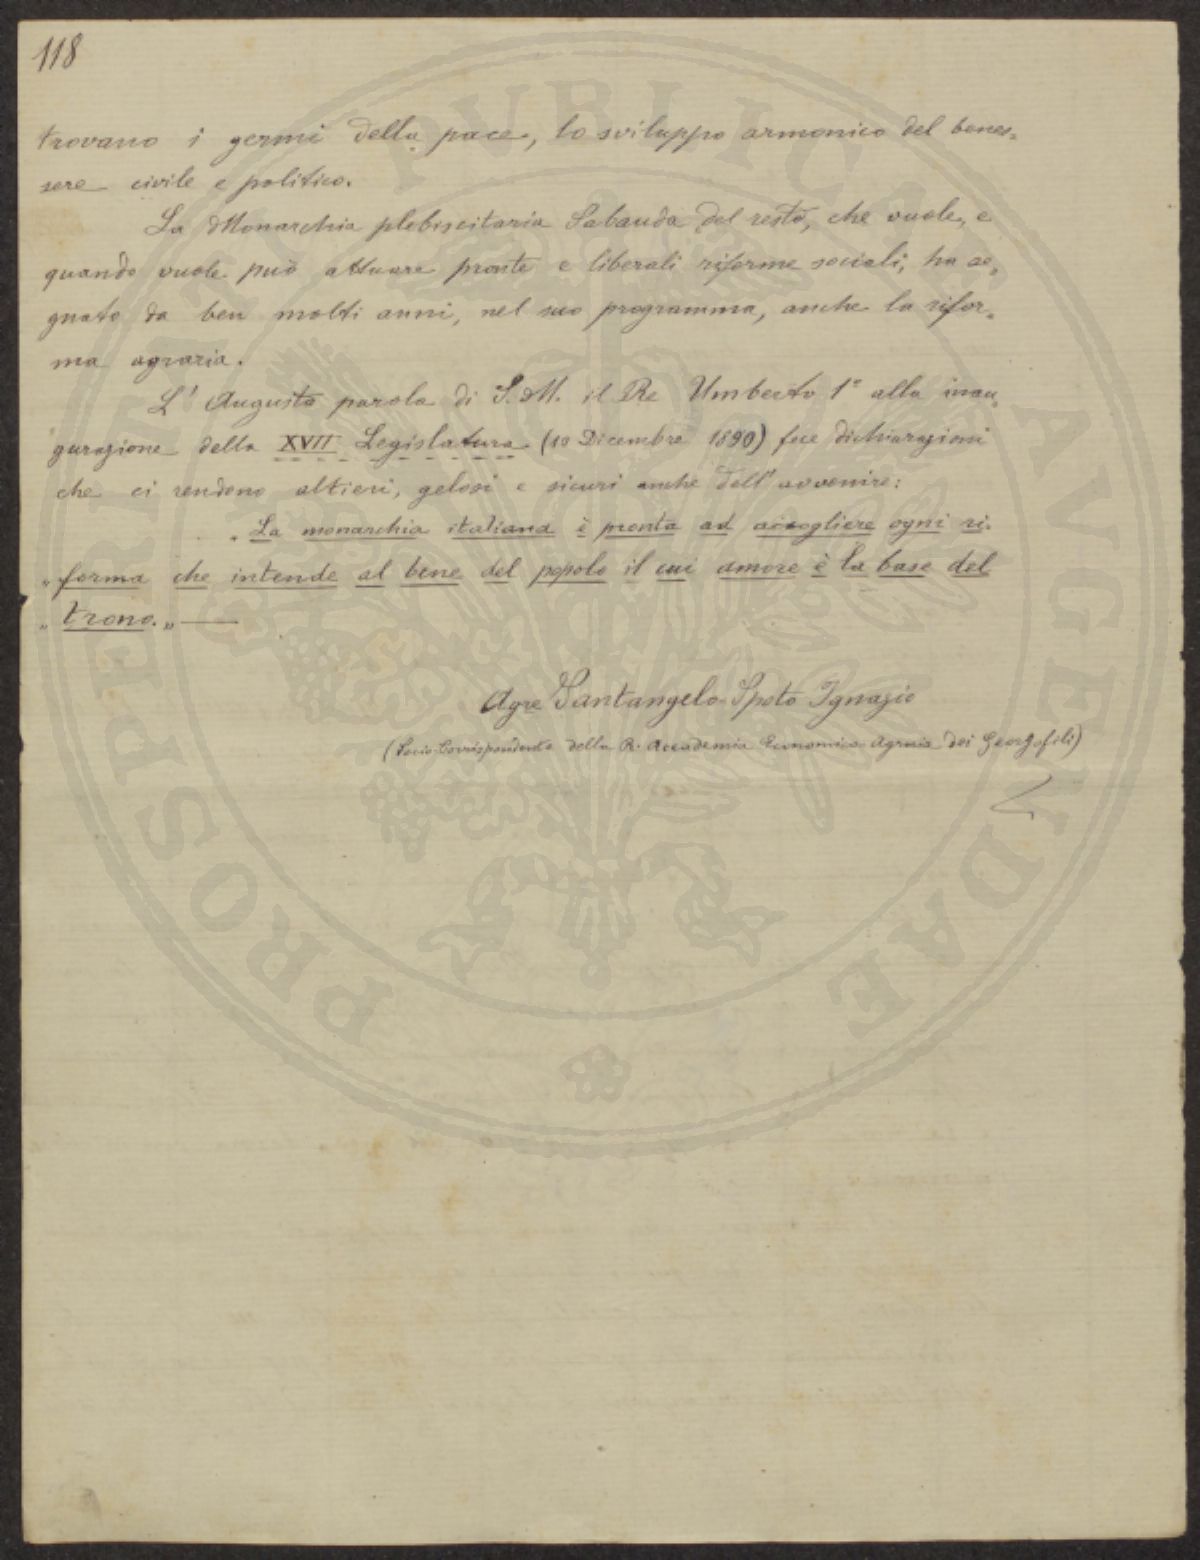 118
trovano i germi della pace, lo sviluppo armonico del benes-
sere civile e politico.
La Monarchia plebiscitaria Sabauda del resto, che vuole, e
quando vuole può attuare pronte e liberali riforme sociali, ha se-
gnato da ben molti anni, nel suo programma, anche la rifor-
ma agraria.
L'Augusta parola di S. M. il Re Umberto 1° alla inau-
gurazione della XVII Legislatura (10 Dicembre 1890) fece dichiarazioni
che ci rendono altieri, gelosi e sicuri anche dell'avvenire:
"La monarchia italiana è pronta ad accogliere ogni ri-
"forma che intende al bene del popolo il cui amore è la base del
"trono."—
Agre Santangelo-Spoto Ignazio
(Socio Corrispondente della R. Accademia Economico Agraria dei Georgofili)
PROSPERITATI PVBLICAE AVGENDAE